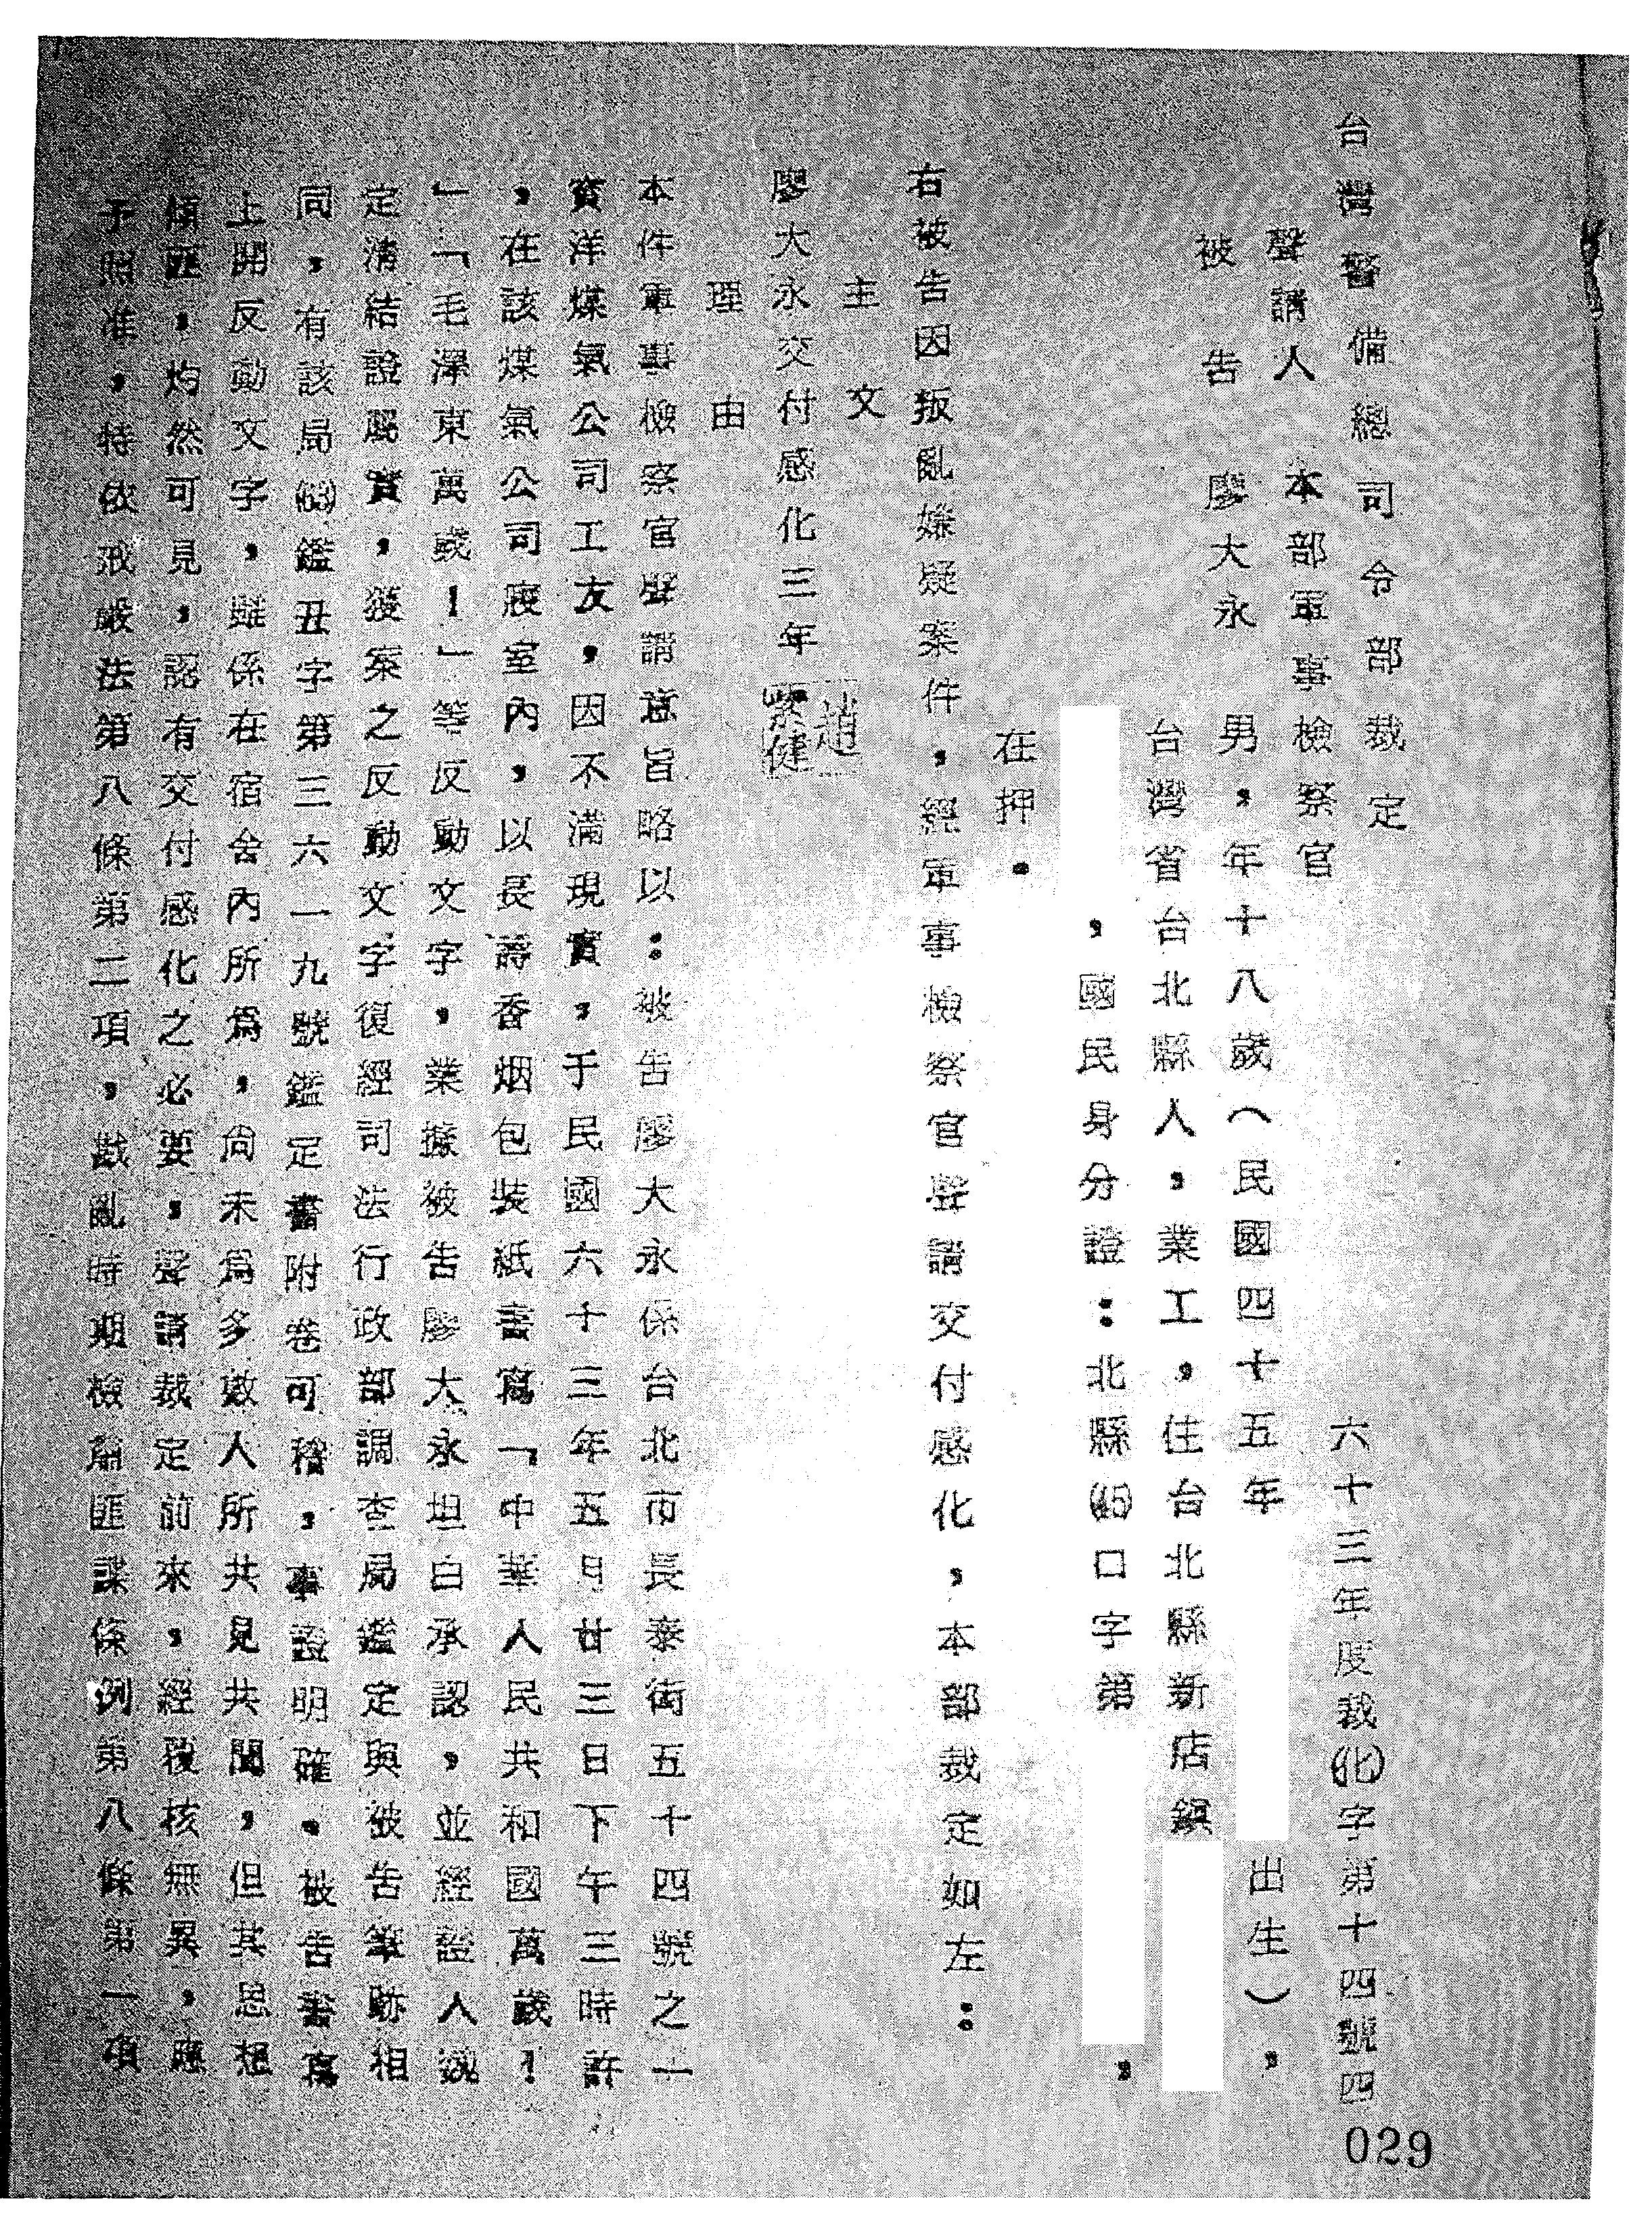 台灣警備總司令部裁定
六十三年度裁(化)字第十四號四
聲請人 本部軍事檢察官
被告 廖大永 男，年十八歲（民國四十五年 出生），
台灣省台北縣人，業工，住台北縣新店鎮
，國民身分證：北縣(45)口字第 ，
在押。
右被告因叛亂嫌疑案件，經軍事檢察官聲請交付感化，本部裁定如左：
主文
廖大永交付感化三年
趙
健
理由
本件軍事檢察官聲請意旨略以：被告廖大永係台北市長泰街五十四號之一
賓洋煤氣公司工友，因不滿現實，于民國六十三年五月廿三日下午三時許
，在該煤氣公司寢室內，以長壽香烟包裝紙書寫「中華人民共和國萬歲！
」「毛澤東萬歲！」等反動文字，業據被告廖大永坦白承認，並經證人魏
定溝結證屬實，獲案之反動文字復經司法行政部調查局鑑定與被告筆跡相
同，有該局(63)鑑丑字第三六一九號鑑定書附卷可稽，事證明確。被告書寫
上開反動文字，雖係在宿舍內所為，尚未為多數人所共見共聞，但其思想
傾匪，灼然可見，認有交付感化之必要，聲請裁定前來，經覆核無異，應
予照准，特依戒嚴法第八條第二項，戡亂時期檢肅匪諜條例第八條第一項
029